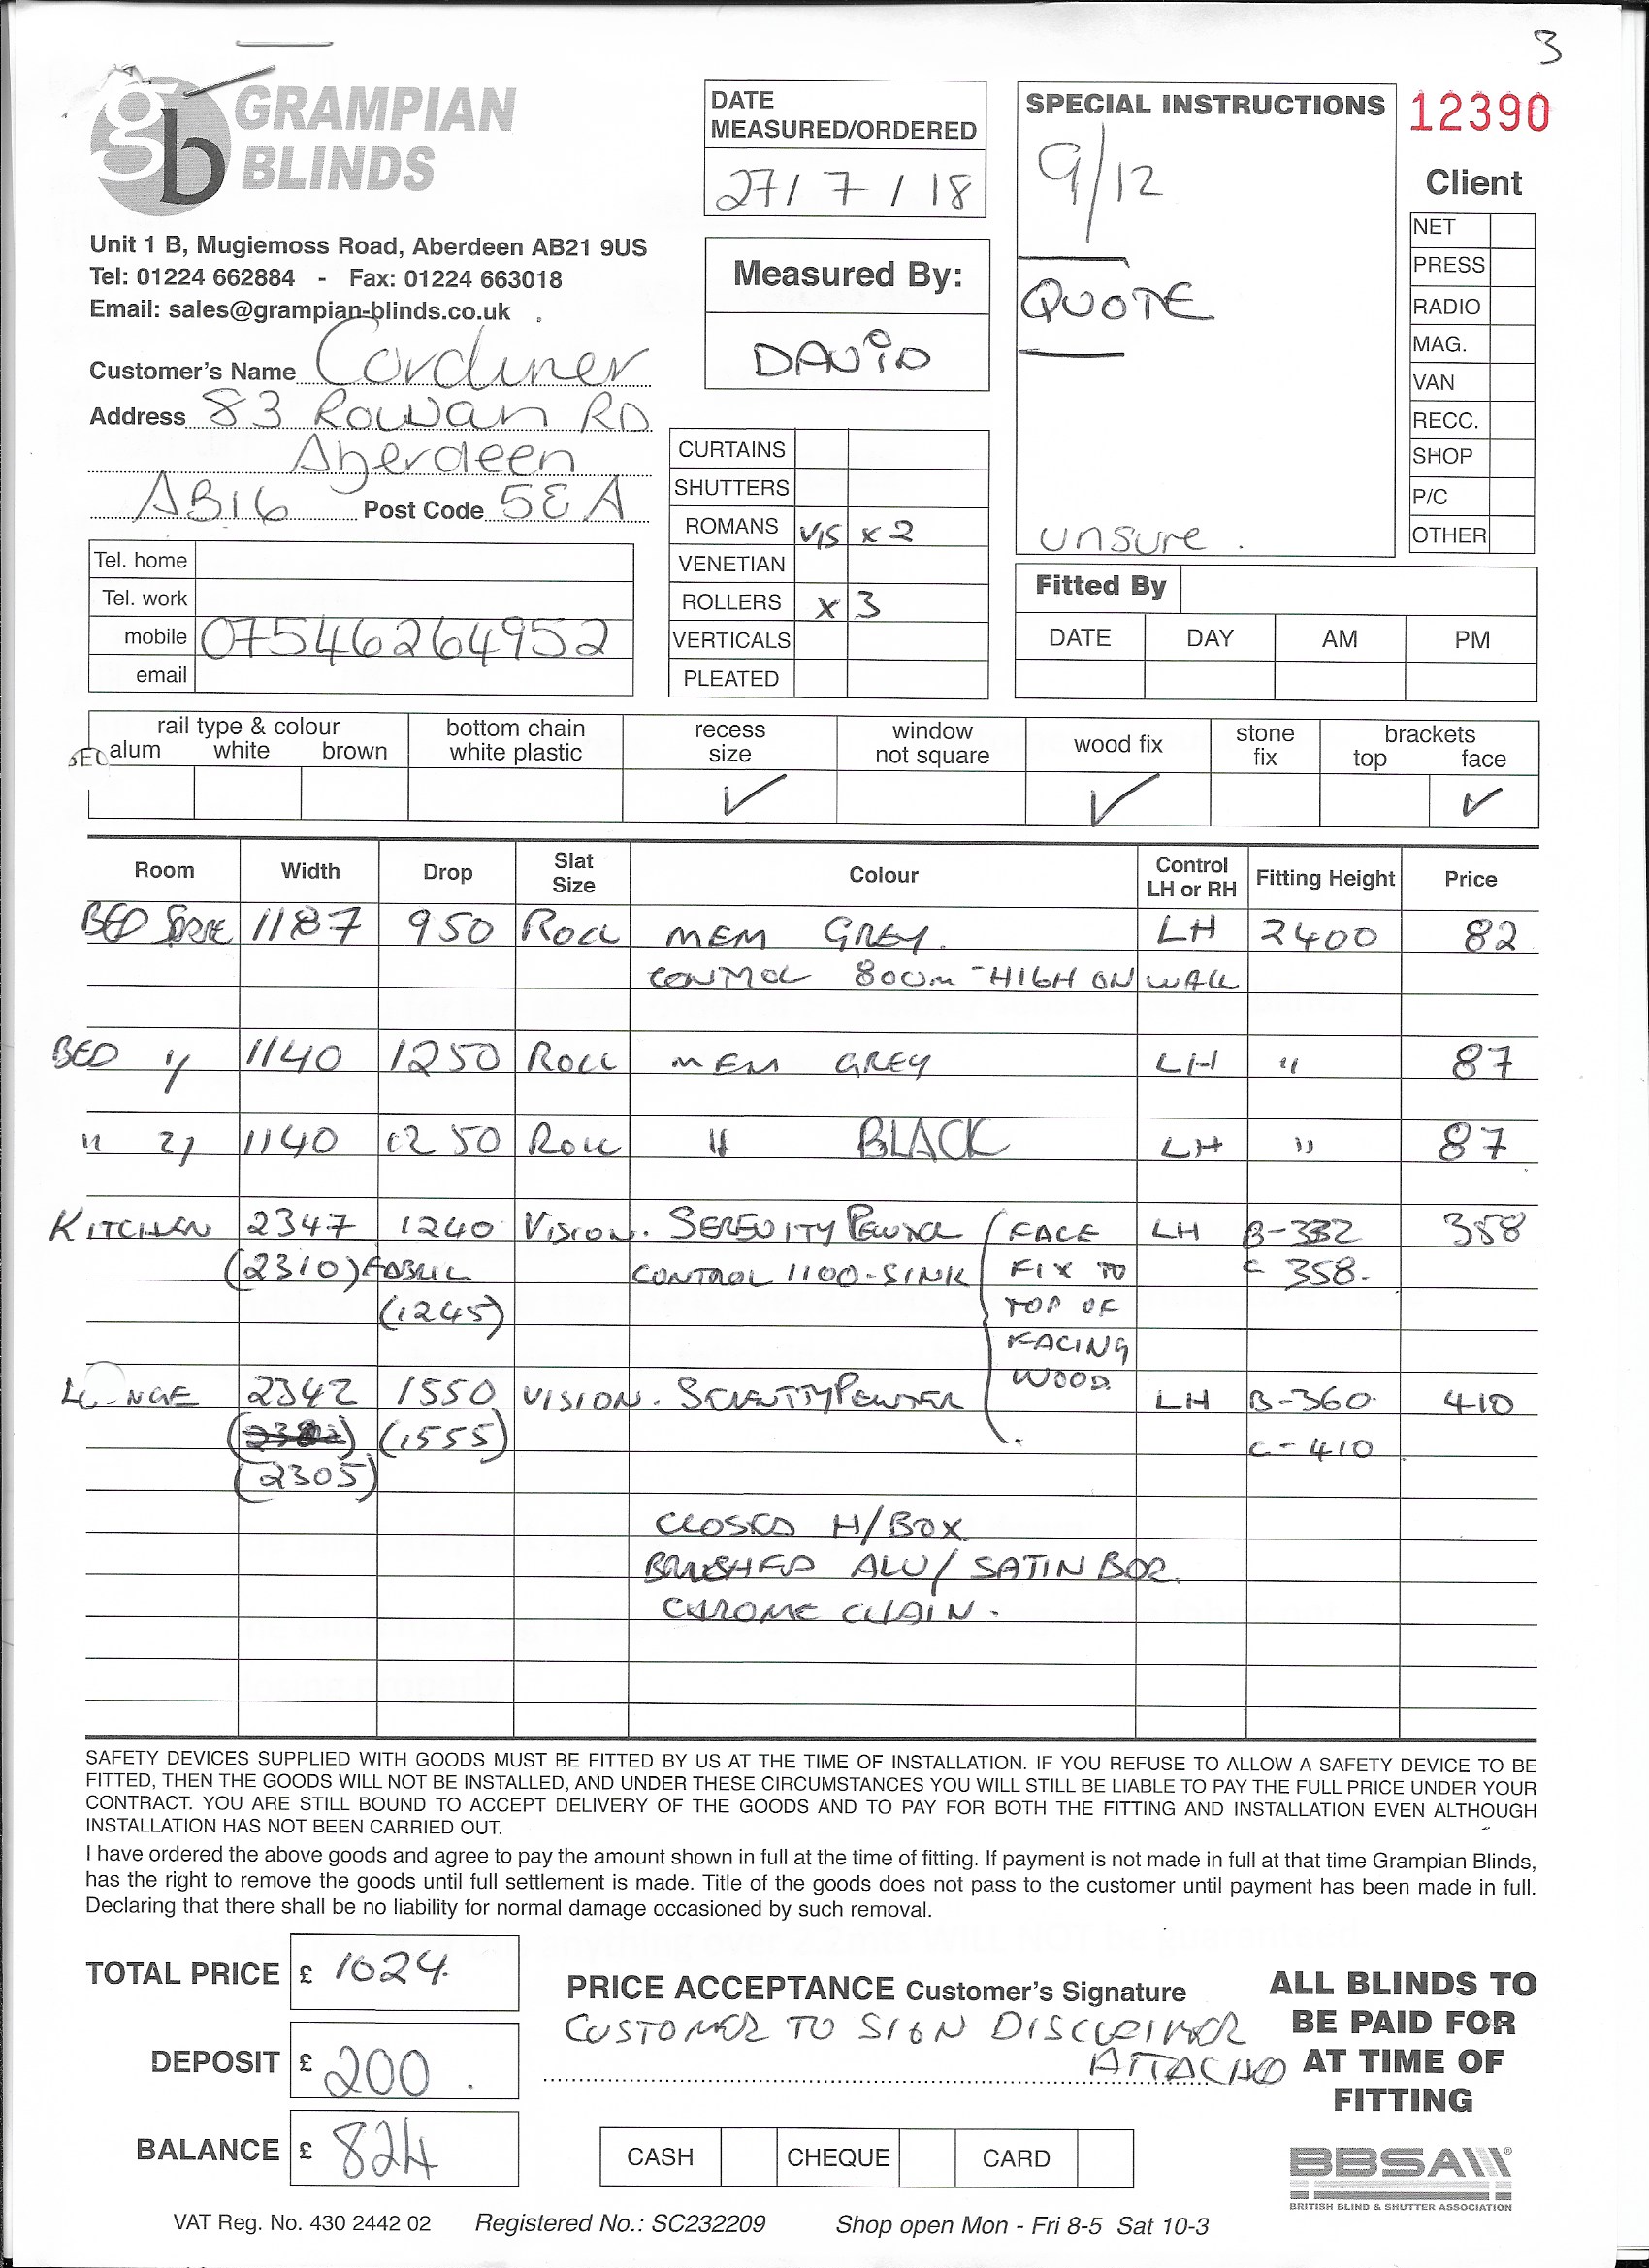 3
GRAMPIAN
BLINDS
gb
Unit 1 B, Mugiemoss Road, Aberdeen AB21 9US
Tel: 01224 662884 - Fax: 01224 663018
Email: sales@grampian-blinds.co.uk
Customer's Name Cordiner
Address 83 Rowan RD
Aberdeen
AB16 Post Code 5EA
Tel. home
Tel. work
mobile 07546264952
email
DATE
MEASURED/ORDERED
27/7/18
Measured By:
DAVID
CURTAINS
SHUTTERS
ROMANS VIS x 2
VENETIAN
ROLLERS x 3
VERTICALS
PLEATED
SPECIAL INSTRUCTIONS
9/12
QUOTE
unsure.
12390
Client
NET
PRESS
RADIO
MAG.
VAN
RECC.
SHOP
P/C
OTHER
Fitted By
DATE DAY AM PM
rail type & colour bottom chain recess window wood fix stone brackets
alum white brown white plastic size not square fix top face
✓ ✓ ✓
Room Width Drop Slat Size Colour Control LH or RH Fitting Height Price
BED 1187 950 ROLL MEM GREY. LH 2400 82
CONTROL 800m - HIGH ON WALL
BED 1/ 1140 1250 ROLL MEM GREY LH " 87
" 2/ 1140 1250 ROLL " BLACK LH " 87
KITCHEN 2347 1240 VISION. SERENITY PEWTER FACE LH B-332 358
(2310) FABRIC CONTROL 1100-SINK FIX TO C 358.
(1245) TOP OF
FACING
WOOD
LOUNGE 2342 1550 VISION. SERENITY PEWTER LH B-360. 410
(1555) C-410
(2305)
CLOSED H/BOX
BRUSHED ALU/ SATIN BOR.
CHROME CHAIN.
SAFETY DEVICES SUPPLIED WITH GOODS MUST BE FITTED BY US AT THE TIME OF INSTALLATION. IF YOU REFUSE TO ALLOW A SAFETY DEVICE TO BE
FITTED, THEN THE GOODS WILL NOT BE INSTALLED, AND UNDER THESE CIRCUMSTANCES YOU WILL STILL BE LIABLE TO PAY THE FULL PRICE UNDER YOUR
CONTRACT. YOU ARE STILL BOUND TO ACCEPT DELIVERY OF THE GOODS AND TO PAY FOR BOTH THE FITTING AND INSTALLATION EVEN ALTHOUGH
INSTALLATION HAS NOT BEEN CARRIED OUT.
I have ordered the above goods and agree to pay the amount shown in full at the time of fitting. If payment is not made in full at that time Grampian Blinds,
has the right to remove the goods until full settlement is made. Title of the goods does not pass to the customer until payment has been made in full.
Declaring that there shall be no liability for normal damage occasioned by such removal.
TOTAL PRICE £ 1024.
DEPOSIT £ 200.
BALANCE £ 824
PRICE ACCEPTANCE Customer's Signature
CUSTOMER TO SIGN DISCLAIMER
ATTACHED
CASH CHEQUE CARD
ALL BLINDS TO
BE PAID FOR
AT TIME OF
FITTING
BBSA
BRITISH BLIND & SHUTTER ASSOCIATION
VAT Reg. No. 430 2442 02 Registered No.: SC232209 Shop open Mon - Fri 8-5 Sat 10-3